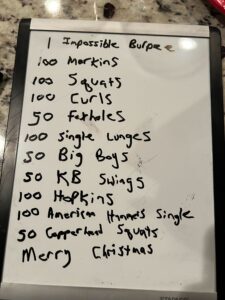 1 Impossible Burpee
100 Merkins
100 Squats
100 Curls
50 Foxholes
100 Single Lunges
50 Big Boys
50 KB Swings
100 Hopkins
100 American Hammers Single
50 Copperhead Squats
Merry Christmas